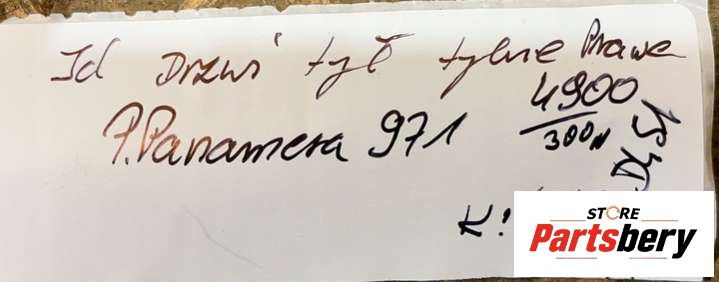 Jd Drzwi tył tylne Prawe
P.Panamera 971
4900
300N
K!
STORE
Partsbery